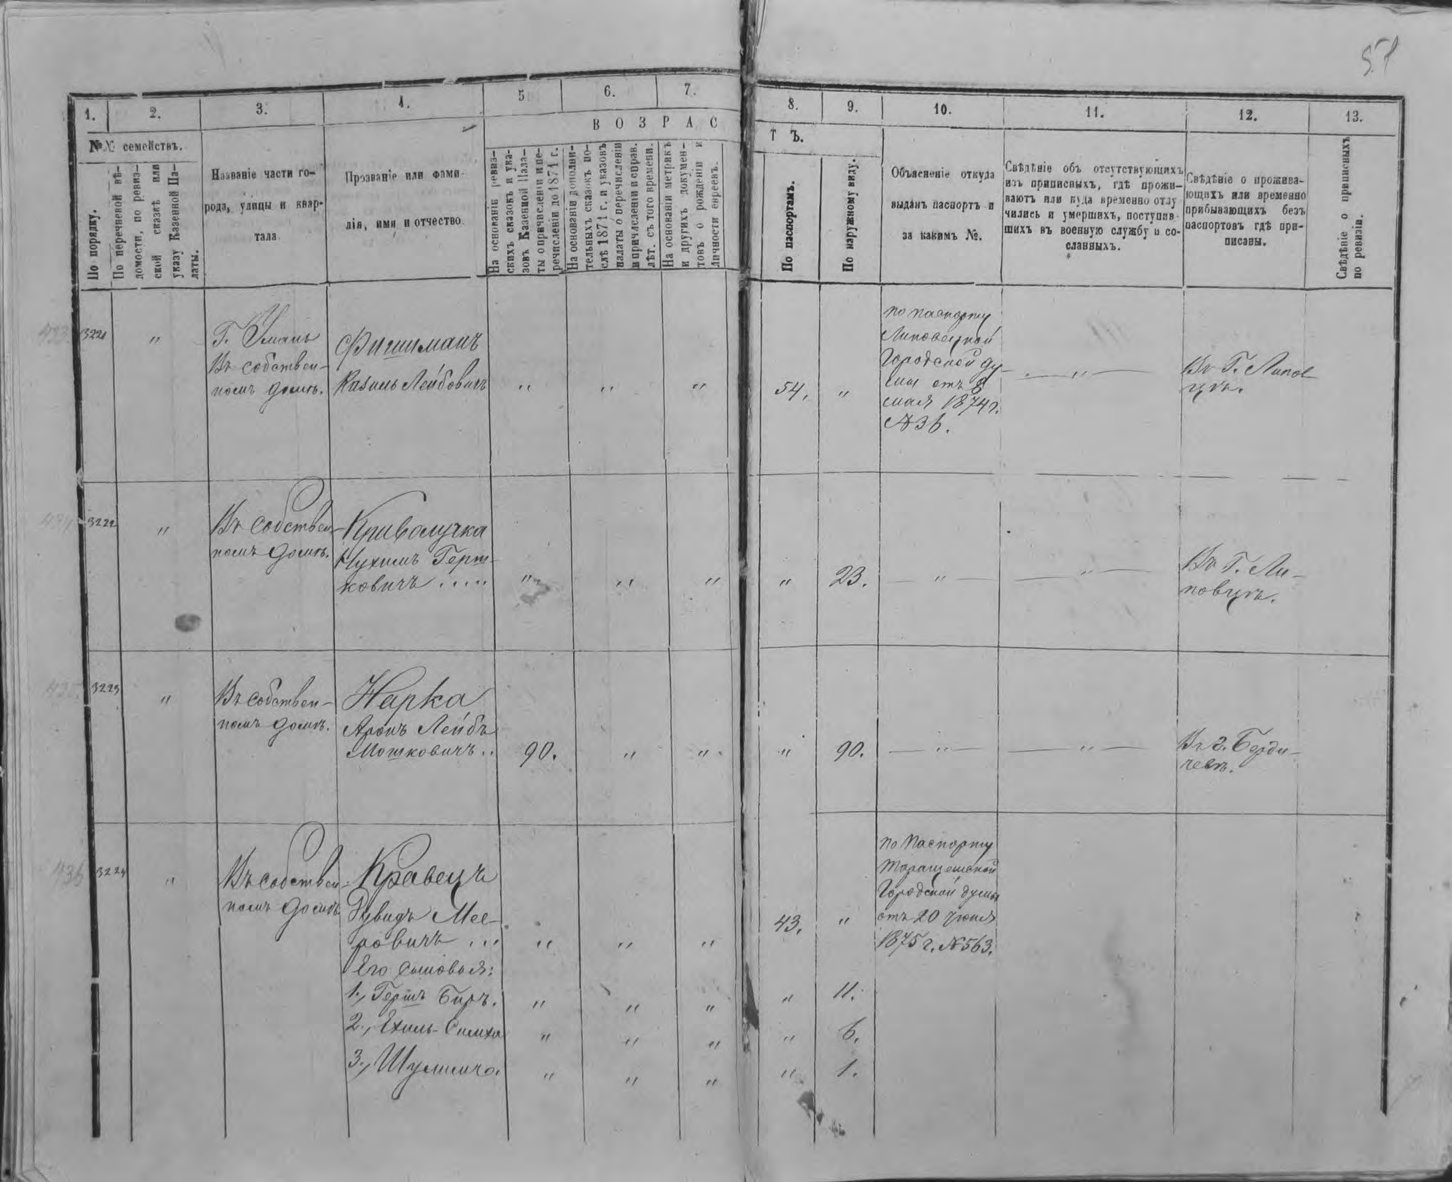 1.
2.
3.
4.
5
6.
7.
8.
9.
10.
11.
12.
13.
№№ семействъ.
По порядку.
По перечневой вѣ-
домости, по ревиз-
ской сказкѣ или
указу Казенной Па-
латы.
Названіе части го-
рода, улицы и квар-
тала
Прозваніе или фами-
лія, имя и отчество.
ВОЗРАС
ТЪ.
На основаніи ревиз-
скихъ сказокъ и ука-
зовъ Казенной Пала-
ты о причисленіи и пе-
речисленіи до 1874 г.
На основаніи дополни-
тельныхъ сказокъ по-
слѣ 1874 г. и указовъ
палаты о перечисленіи
и причисленіи и справ.
лѣт. съ того времени.
На основаніи метрикъ
и другихъ докумен-
товъ о рожденіи и
личности евреевъ.
По паспортамъ.
По наружному виду.
Объясненіе откуда
выданъ паспортъ и
за какимъ №.
Свѣдѣніе объ отсутствующихъ
изъ приписныхъ, гдѣ прожи-
ваютъ или куда временно отлу
чились и умершихъ, поступив-
шихъ въ военную службу и со-
сланныхъ.
Свѣдѣніе о прожива-
ющихъ или временно
прибывающихъ безъ
паспортовъ гдѣ при-
писаны.
Свѣдѣніе о приписныхъ
по ревизіи.
3221
"
Г. Умань
Въ собствен-
номъ домѣ.
Фишманъ
Лейбовичъ
"
"
"
54.
"
По паспорту
Липовецкой
Городской Ду-
мы отъ 8
мая 1874 г.
№ 36.
"
Въ Г. Липов
цѣ.
3222
"
Въ собствен
номъ домѣ.
Криволучка
Нухимъ Герш-
ковичъ .....
"
"
"
"
23.
"
"
Въ Г. Ли-
повцѣ.
3223
"
Въ собствен-
номъ домѣ.
Нарка
Аронъ Лейбъ
Мошковичъ..
90.
"
"
"
90.
"
"
Въ г. Берди-
чевѣ.
436
3224
"
Въ собствен
номъ домѣ
Кравецъ
Рувидъ Мее-
ровичъ ...
"
"
"
43.
"
По паспорту
Таращанской
Городской думы
отъ 20 Іюня
1875 г. № 563.
Его сыновья:
1., Гершъ Беръ.
"
"
"
"
11.
2., Ехиль-Симха
"
"
"
"
6.
3., Шулимъ.
"
"
"
"
1.